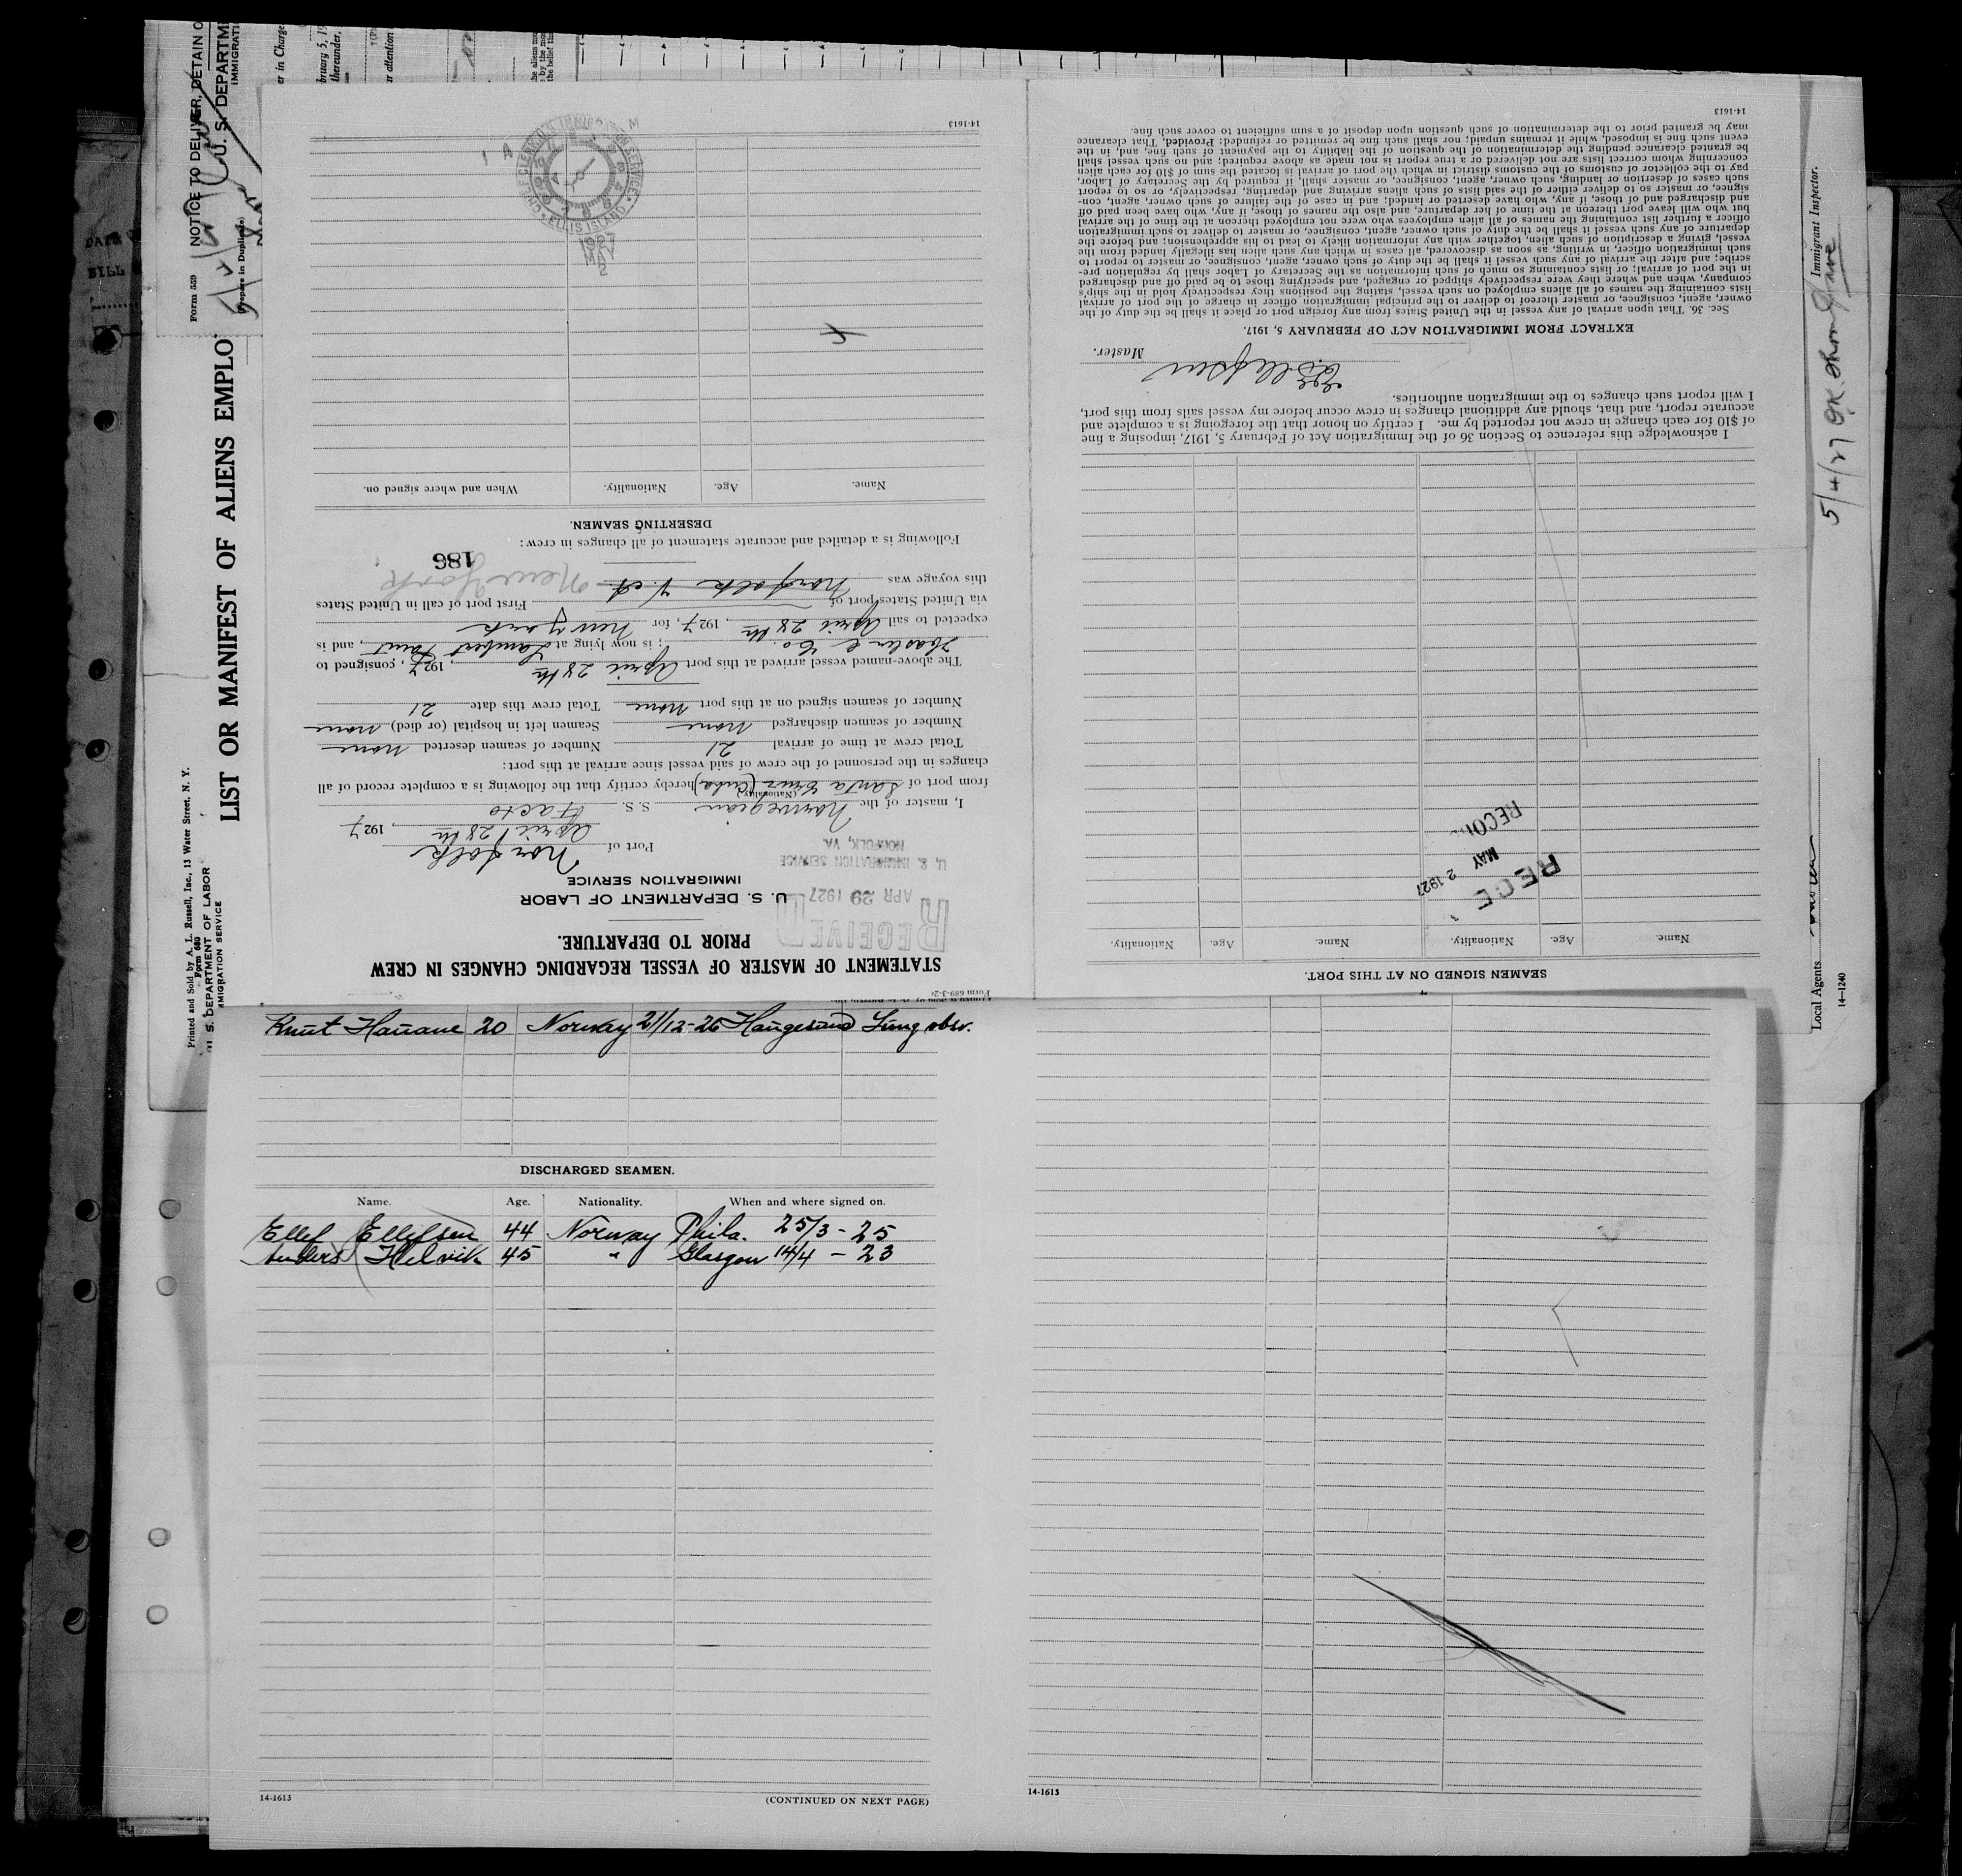 er in Charge
bruary 5, 19
thereunder,
r attention
he aliens mo
by the mo
the belief tha
Form 559
NOTICE TO DELIVER, DETAIN O
U. S. DEPARTM
IMMIGRATI
(Prepare in Duplicate)
LIST OR MANIFEST OF ALIENS EMPLO
Printed and Sold by A. L. Russell, Inc., 13 Water Street, N. Y.
Form 680
U. S. DEPARTMENT OF LABOR
IMMIGRATION SERVICE
DATE
BILL
Form 689-3-2
STATEMENT OF MASTER OF VESSEL REGARDING CHANGES IN CREW
PRIOR TO DEPARTURE.
U. S. DEPARTMENT OF LABOR
IMMIGRATION SERVICE
RECEIVED
APR 29 1927
U. S. IMMIGRATION SERVICE
NORFOLK, VA.
Port of Norfolk
April 28th, 1927
I, master of the Norwegian S. S. Hacto
(Nationality)
from port of Santa Cruz (Cuba) hereby certify that the following is a complete record of all
changes in the personnel of the crew of said vessel since arrival at this port:
Total crew at time of arrival 21 Number of seamen deserted none
Number of seamen discharged none Seamen left in hospital (or died) none
Number of seamen signed on at this port none Total crew this date 21
The above-named vessel arrived at this port April 28th, 1927, consigned to
Hasler & Co.; is now lying at Lambert Point, and is
expected to sail April 28th, 1927, for New York
via United States port of First port of call in United States
this voyage was Norfolk Va New York
186
Following is a detailed and accurate statement of all changes in crew:
DESERTING SEAMEN.
Name. Age. Nationality. When and where signed on.
CHIEF CLERK
ELLIS ISLAND
1927
MAY
2
14-1613
SEAMEN SIGNED ON AT THIS PORT.
Name. Age. Nationality. Name. Age. Nationality.
RECE
MAY 2 1927
RECOR
I acknowledge this reference to Section 36 of the Immigration Act of February 5, 1917, imposing a fine
of $10 for each change in crew not reported by me. I certify on honor that the foregoing is a complete and
accurate report, and that, should any additional changes in crew occur before my vessel sails from this port,
I will report such changes to the immigration authorities.
Ellefsen
Master.
EXTRACT FROM IMMIGRATION ACT OF FEBRUARY 5, 1917.
Sec. 36. That upon arrival of any vessel in the United States from any foreign port or place it shall be the duty of the
owner, agent, consignee, or master thereof to deliver to the principal immigration officer in charge of the port of arrival
lists containing the names of all aliens employed on such vessel, stating the positions they respectively hold in the ship's
company, when and where they were respectively shipped or engaged, and specifying those to be paid off and discharged
in the port of arrival; or lists containing so much of such information as the Secretary of Labor shall by regulation pre-
scribe; and after the arrival of any such vessel it shall be the duty of such owner, agent, consignee, or master to report to
such immigration officer, in writing, as soon as discovered, all cases in which any such alien has illegally landed from the
vessel, giving a description of such alien, together with any information likely to lead to his apprehension; and before the
departure of any such vessel it shall be the duty of such owner, agent, consignee, or master to deliver to such immigration
officer a further list containing the names of all alien employees who were not employed thereon at the time of the arrival
but who will leave port thereon at the time of her departure, and also the names of those, if any, who have been paid off
and discharged and of those, if any, who have deserted or landed; and in case of the failure of such owner, agent, con-
signee, or master so to deliver either of the said lists of such aliens arriving and departing, respectively, or so to report
such cases of desertion or landing, such owner, agent, consignee, or master shall, if required by the Secretary of Labor,
pay to the collector of customs of the customs district in which the port of arrival is located the sum of $10 for each alien
concerning whom correct lists are not delivered or a true report is not made as above required; and no such vessel shall
be granted clearance pending the determination of the question of the liability to the payment of such fine, and, in the
event such fine is imposed, while it remains unpaid; nor shall such fine be remitted or refunded: Provided, That clearance
may be granted prior to the determination of such question upon deposit of a sum sufficient to cover such fine.
14-1613
Immigrant Inspector.
5/4/27 OK
Local Agents
14-1240
Knut Hauane 20 Norway 21/12-26 Haugesund Lung obsv.
DISCHARGED SEAMEN.
Name. Age. Nationality. When and where signed on.
Ellef Ellefsen 44 Norway Phila. 25/3-25
Anders Helvik 45 " Glasgow 14/4 - 23
14-1613
(CONTINUED ON NEXT PAGE)
14-1613